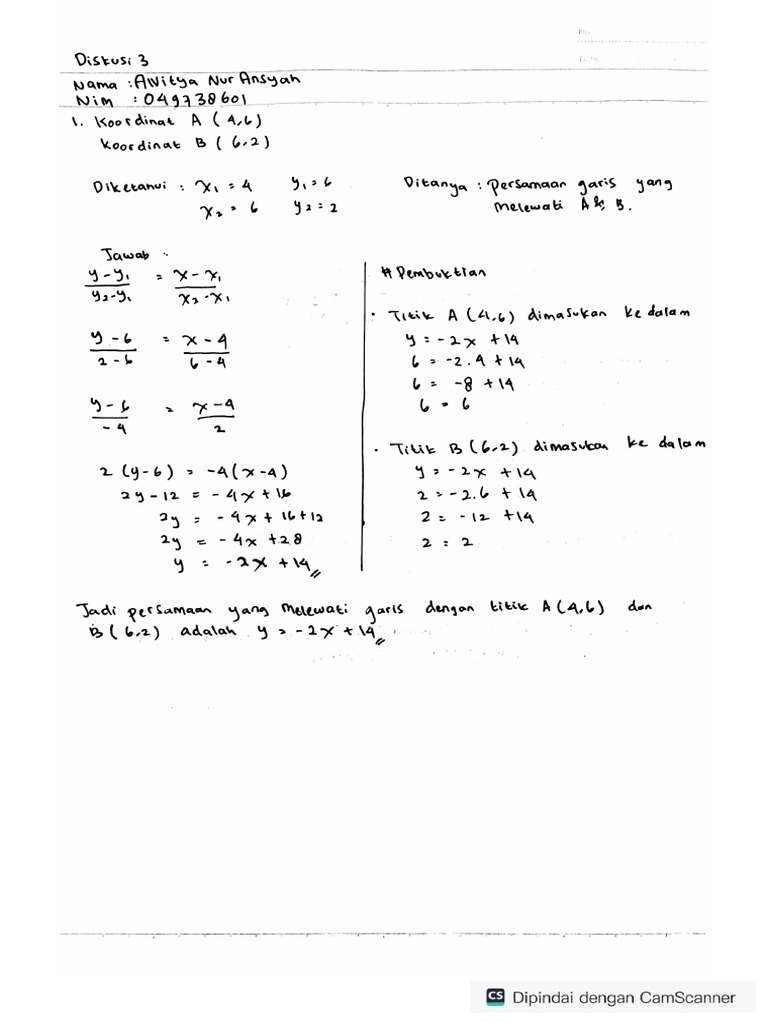 No
Date
Diskusi 3
Nama : AWitya Nur Ansyah
Nim : 049738601
1. Koordinat A (4,6)
Koordinat B (6,2)
Diketahui : x₁ = 4 y₁ = 6
x₂ = 6 y₂ = 2
Ditanya : Persamaan garis yang
melewati A & B.
Jawab :
y - y₁ / y₂ - y₁ = x - x₁ / x₂ - x₁
y - 6 / 2 - 6 = x - 4 / 6 - 4
y - 6 / -4 = x - 4 / 2
2 (y - 6) = -4 (x - 4)
2y - 12 = -4x + 16
2y = -4x + 16 + 12
2y = -4x + 28
y = -2x + 14 //
# Pembuktian
• Titik A (4,6) dimasukan ke dalam
y = -2x + 14
6 = -2.4 + 14
6 = -8 + 14
6 = 6
• Titik B (6,2) dimasukan ke dalam
y = -2x + 14
2 = -2.6 + 14
2 = -12 + 14
2 = 2
Jadi persamaan yang melewati garis dengan titik A (4,6) dan
B (6,2) adalah y = -2x + 14 //
CS Dipindai dengan CamScanner